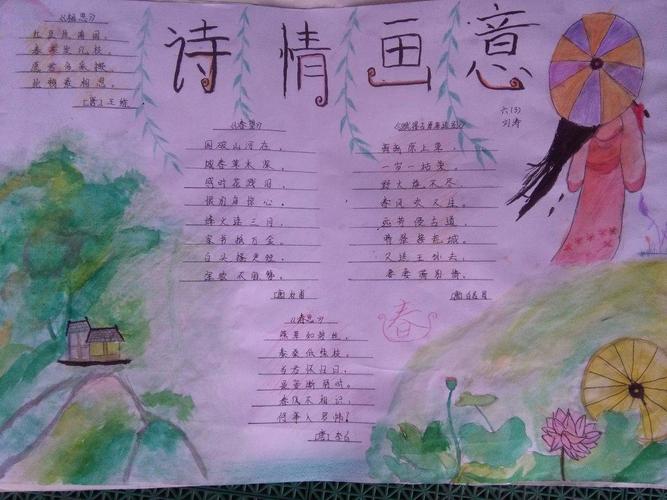 诗情画意
六(3)
刘涛
《相思》
红豆生南国，
春来发几枝。
愿君多采撷，
此物最相思。
[唐]王维
《春望》
国破山河在，
城春草木深。
感时花溅泪，
恨别鸟惊心。
烽火连三月，
家书抵万金。
白头搔更短，
浑欲不胜簪。
《赋得古原草送别》
离离原上草，
一岁一枯荣。
野火烧不尽，
春风吹又生。
远芳侵古道，
晴翠接荒城。
又送王孙去，
萋萋满别情。
春
《春思》
燕草如碧丝，
秦桑低绿枝。
当君怀归日，
是妾断肠时。
春风不相识，
何事入罗帏？